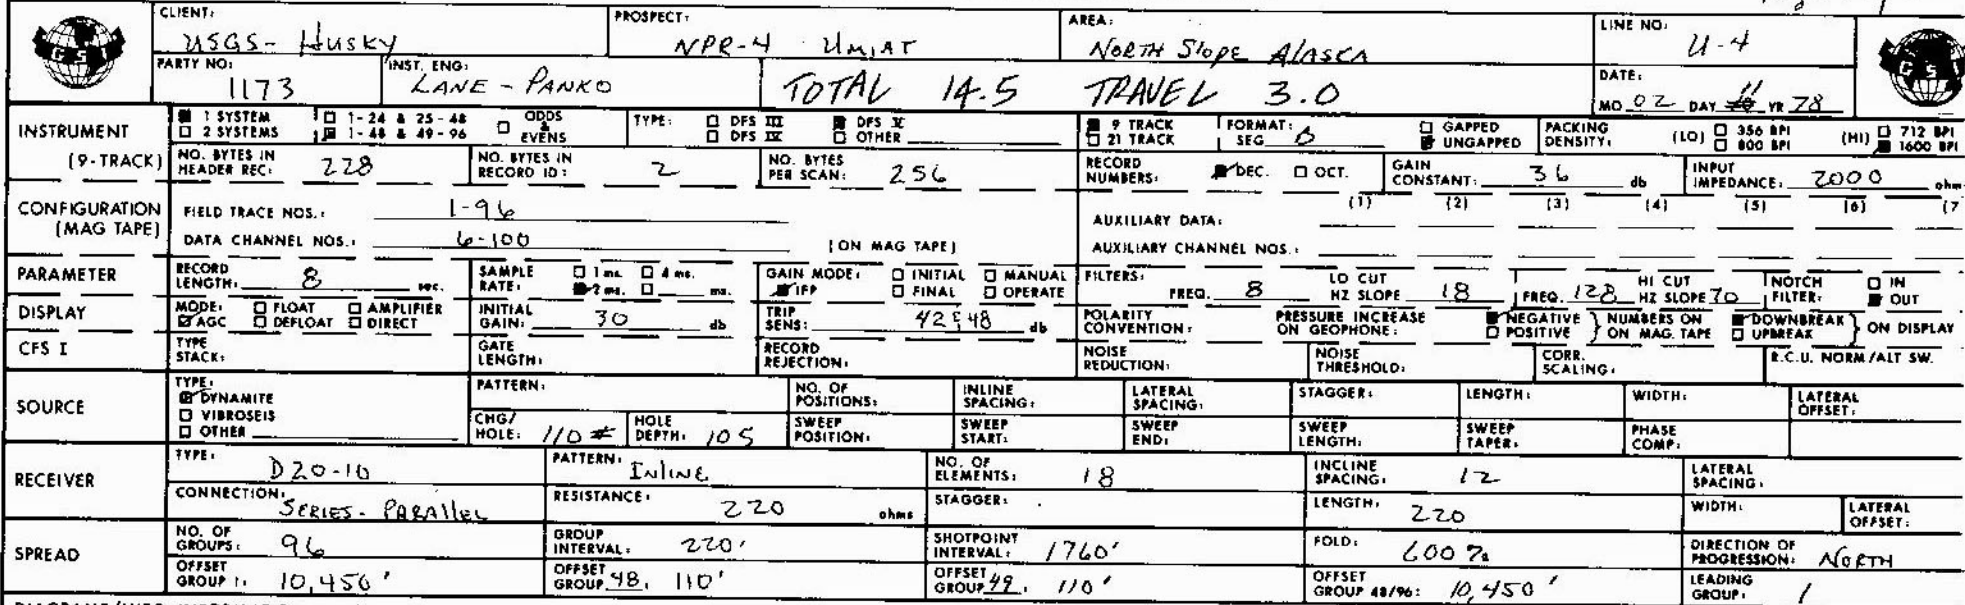 CLIENT: USGS- HUSKY PROSPECT: NPR-4 UMIAT AREA: NORTH SLOPE ALASKA LINE NO: U-4
GSI
PARTY NO: 1173 INST. ENG: LANE - PANKO TOTAL 14.5 TRAVEL 3.0 DATE: MO 02 DAY 11 YR 78
INSTRUMENT 1 SYSTEM 1-24 & 25-48 ODDS & EVENS TYPE: DFS III DFS V 9 TRACK FORMAT: GAPPED PACKING DENSITY: (LO) 356 BPI (HI) 712 BPI
2 SYSTEMS 1-48 & 49-96 DFS IV OTHER 21 TRACK SEG B UNGAPPED 800 BPI 1600 BPI
(9-TRACK) NO. BYTES IN HEADER REC: 228 NO. BYTES IN RECORD ID: 2 NO. BYTES PER SCAN: 256 RECORD NUMBERS: DEC. OCT. GAIN CONSTANT: 36 db INPUT IMPEDANCE: 2000 ohm
CONFIGURATION (MAG TAPE) FIELD TRACE NOS.: 1-96 AUXILIARY DATA: (1) (2) (3) (4) (5) (6) (7
DATA CHANNEL NOS.: 6-100 (ON MAG TAPE) AUXILIARY CHANNEL NOS.:
PARAMETER RECORD LENGTH: 8 sec. SAMPLE RATE: 1 ms. 4 ms. 2 ms. ms. GAIN MODE: INITIAL MANUAL IFP FINAL OPERATE FILTERS: LO CUT FREQ. 8 HZ SLOPE 18 HI CUT FREQ. 128 HZ SLOPE 70 NOTCH FILTER: IN OUT
DISPLAY MODE: FLOAT AMPLIFIER AGC DEFLOAT DIRECT INITIAL GAIN: 30 db TRIP SENS: 42 & 48 db POLARITY CONVENTION: PRESSURE INCREASE ON GEOPHONE: NEGATIVE POSITIVE NUMBERS ON ON MAG. TAPE DOWNBREAK UPBREAK ON DISPLAY
CFS I TYPE STACK: GATE LENGTH: RECORD REJECTION: NOISE REDUCTION: NOISE THRESHOLD: CORR. SCALING: R.C.U. NORM/ALT SW.
SOURCE TYPE: DYNAMITE VIBROSEIS OTHER PATTERN: NO. OF POSITIONS: INLINE SPACING: LATERAL SPACING: STAGGER: LENGTH: WIDTH: LATERAL OFFSET:
CHG/HOLE: 110# HOLE DEPTH: 105 SWEEP POSITION: SWEEP START: SWEEP END: SWEEP LENGTH: SWEEP TAPER: PHASE COMP:
RECEIVER TYPE: D20-10 PATTERN: INLINE NO. OF ELEMENTS: 18 INCLINE SPACING: 12 LATERAL SPACING:
CONNECTION: SERIES- PARALLEL RESISTANCE: 220 ohms STAGGER: LENGTH: 220 WIDTH: LATERAL OFFSET:
SPREAD NO. OF GROUPS: 96 GROUP INTERVAL: 220' SHOTPOINT INTERVAL: 1760' FOLD: 600% DIRECTION OF PROGRESSION: NORTH
OFFSET GROUP 1: 10,450' OFFSET GROUP 48: 110' OFFSET GROUP 49: 110' OFFSET GROUP 48/96: 10,450' LEADING GROUP: 1